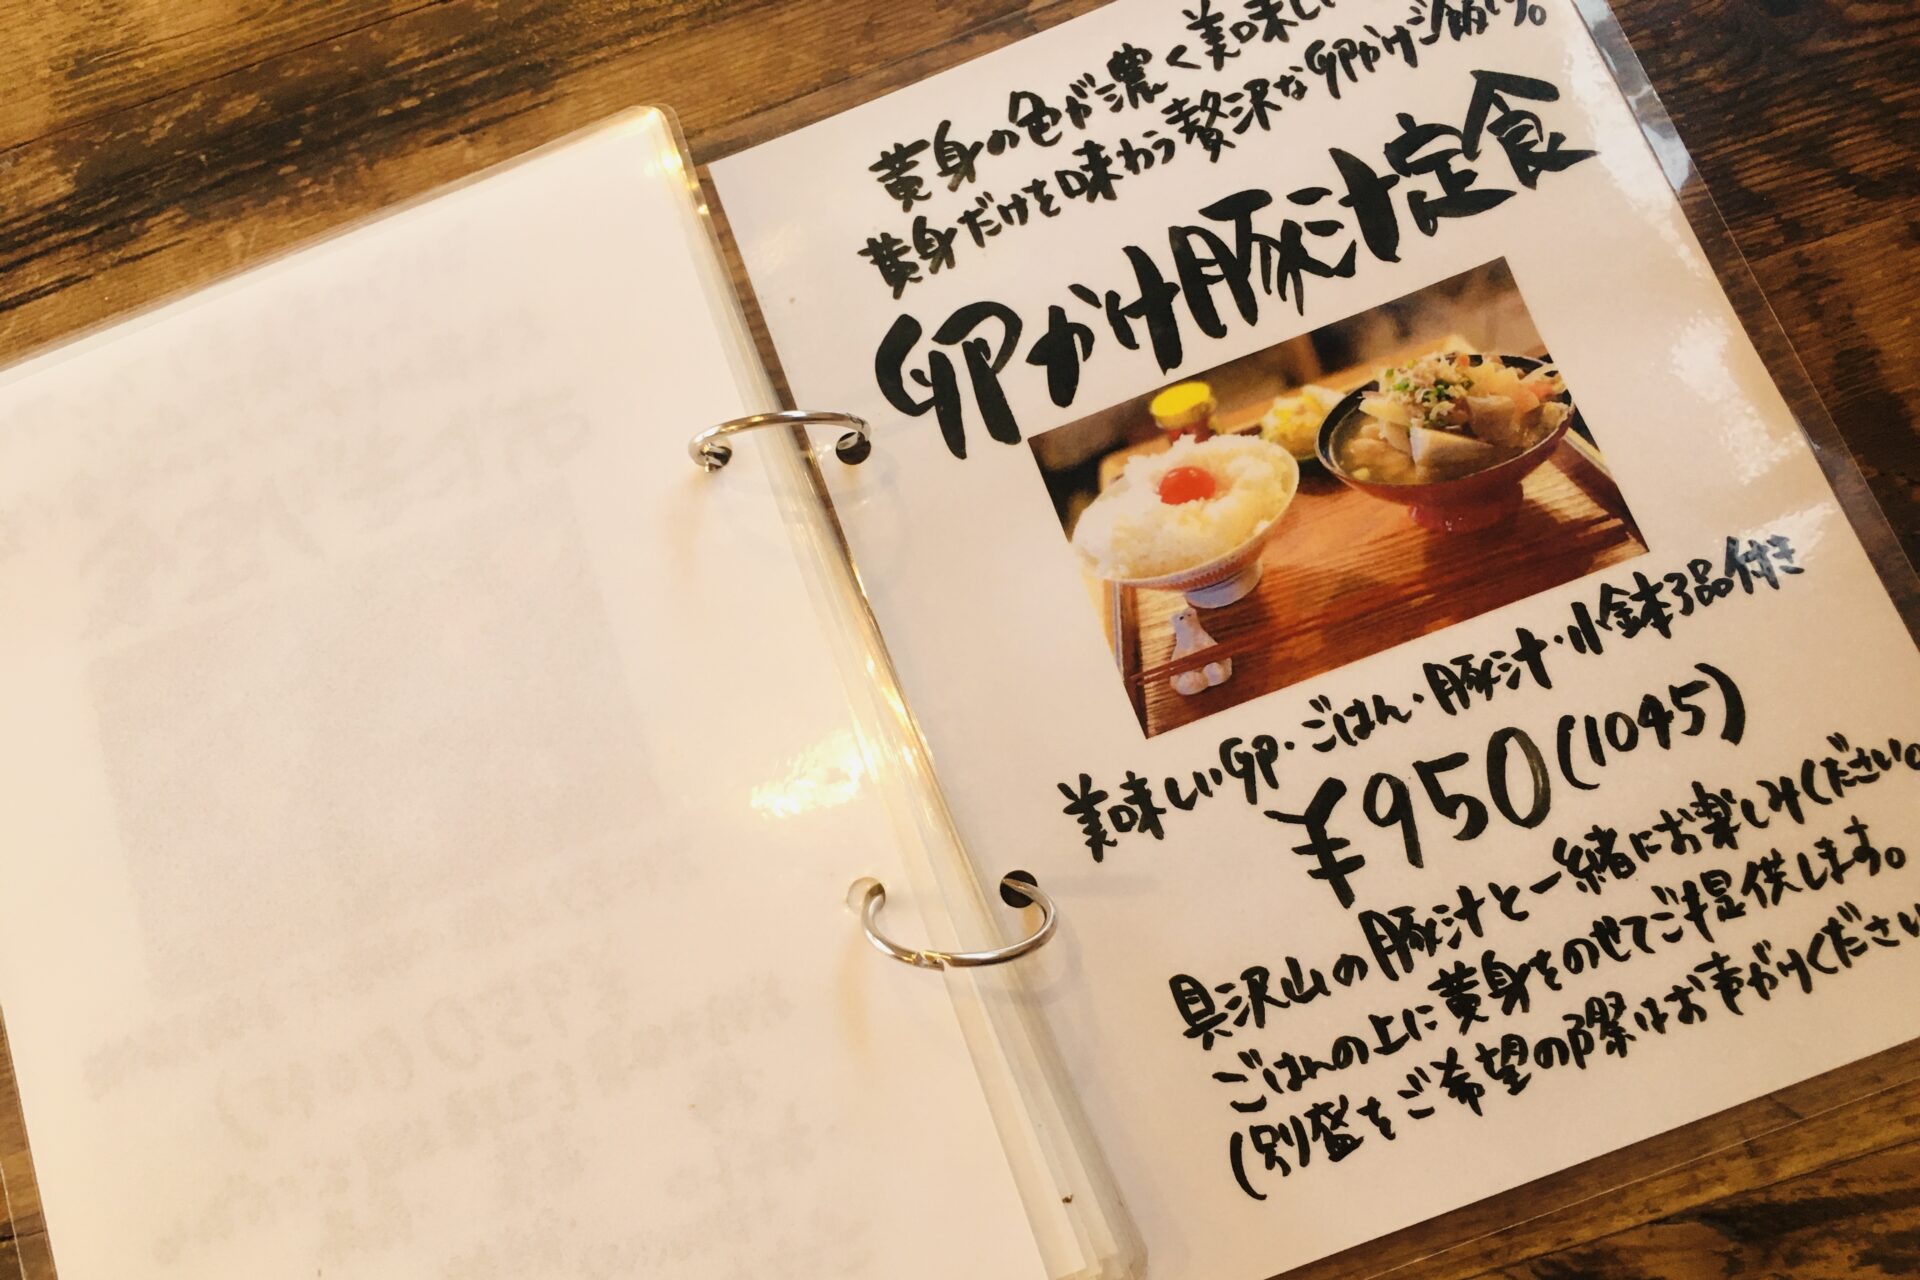 黄身の色が濃く美味しい
黄身だけを味わう贅沢な卵かけご飯です。
卵かけ豚汁定食
美味しい卵・ごはん・豚汁・小鉢3品付き
¥950(1045)
具沢山の豚汁と一緒にお楽しみください。
ごはんの上に黄身をのせてご提供します。
(別盛をご希望の際はお声がけください